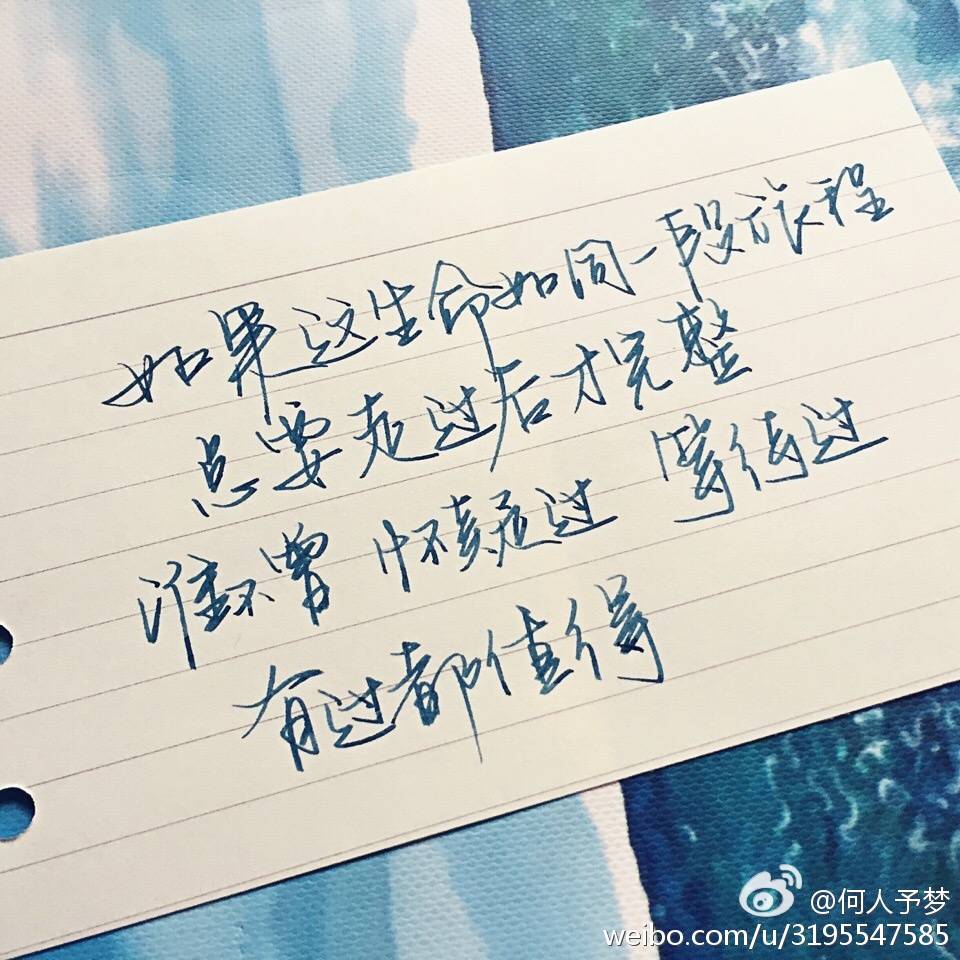 如果这生命如同一段旅程
总要走过后才完整
谁不曾 怀疑过 等待过
有过都值得
@何人予梦
weibo.com/u/3195547585